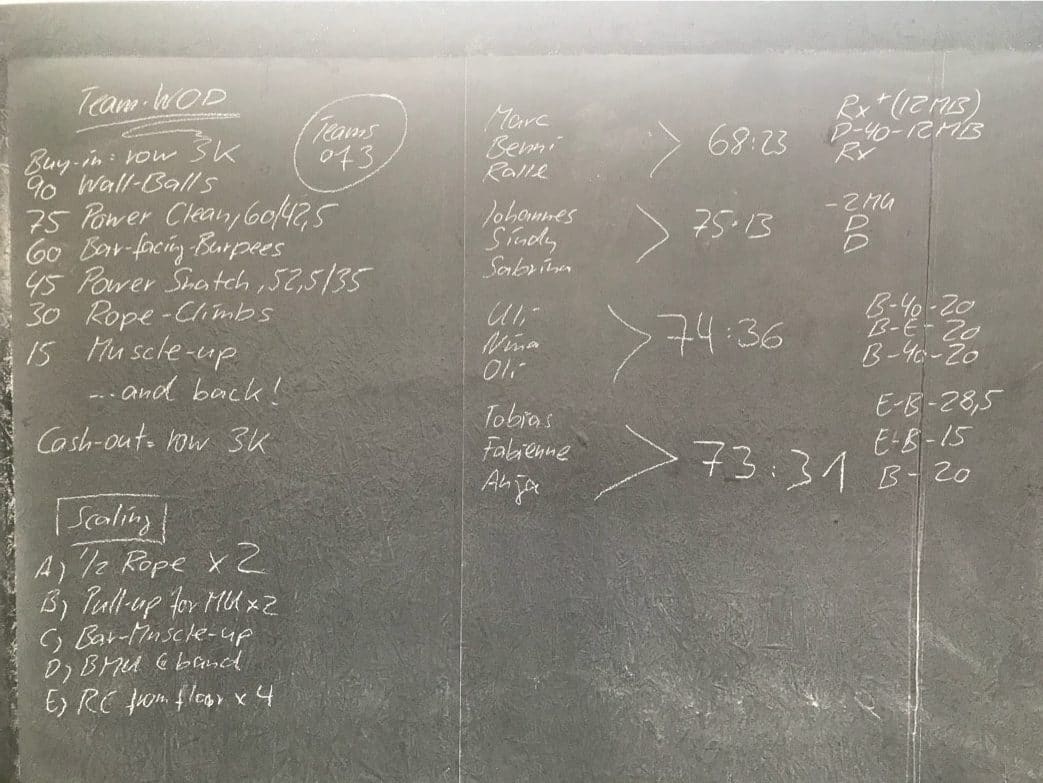 Team-WOD
Teams
of 3
Buy-in: row 3K
90 Wall-Balls
75 Power Clean, 60/42,5
60 Bar-facing-Burpees
45 Power Snatch, 52,5/35
30 Rope-Climbs
15 Muscle-up
...and back!
Cash-out: row 3K
Scaling
A) 1/2 Rope x 2
B) Pull-up for MU x 2
C) Bar-Muscle-up
D) BMU band
E) RC from floor x 4
Marc
Benni
Ralle
68:23
Rx+ (12 MB)
D-40-12MB
Rx
Johannes
Sindy
Sabrina
75:13
-2MU
D
D
Uli
Nina
Oli
74:36
B-40-20
B-E-20
B-40-20
Tobias
Fabienne
Anja
73:31
E-B-28,5
E-B-15
B-20